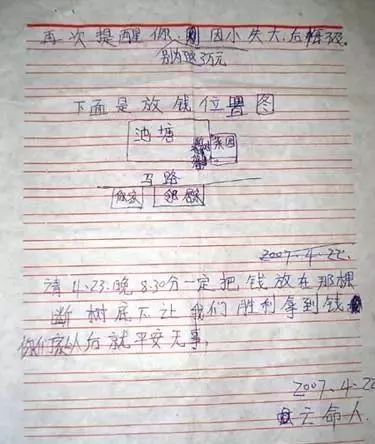 再次提醒你、因小失大、后悔
别为
3万元
下面是放钱位置图
池塘
菜园
马路
你家
2007.4.22
请4.23.晚8:30分一定把钱放在那棵
断树底下让我们胜利拿到钱
你们家以后就平安无事,
2007.4.22
亡命人.